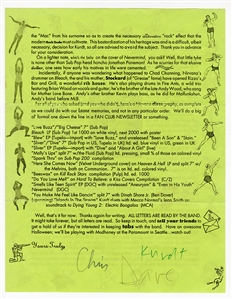 the "Mac" from his surname so as to create the necessary "rock" effect that the
cultivate. This bastardization of his heritage was not a difficult, albeit
necessary, decision for Kurdt, so all are advised to avoid the subject. Thank you in
advance for your consideration.
On a lighter note, who's is now on the cover of Newsweek, you ask? Well, that little tyke
is none other than Sub Pop head honcho Jonathan Poneman! As he scurries for that elusive
dollar, one sees how early his motives in life were cemented.
Incidentally, if anyone was wondering what happened to Chad Channing, Nirvana's
drummer on Bleach, the and his mother, Stockard (of "Grease" fame) have opened Rizzo's
Bar and Grill, a wonderful rib house. He's also playing drums in Fire Ants, a wild trio
featuring Brian Wood on vocals and guitar, he's the brother of the late Andy Wood, who sang
for Mother Love Bone. Andy's other brother Kevin plays bass, as he did for Malfunkshun,
Andy's band before MLB.
as could do with us in our
of formal one down the line in a FAN CLUB NEWSLETTER or something.
"Love Buzz"/"Big Cheese" 7" (Sub Pop)
Bleach LP (Sub Pop) 1st 1000 on white vinyl, next 2000 with poster
"Blew" EP (Tupelo—import) with "Love Buzz", and unreleased "Been A Son" & "Stain"
"Sliver"/"Dive" 7" (Sub Pop in US, Tupelo in UK) ltd. ed. blue vinyl in US, green in UK
"Sliver" EP (Tupelo—import) with "Dive" and "About A Girl" (live)
"Molly's Lips" split 7" w/the Fluid (Sub Pop) ltd. pressing, small % of those on colored vinyl
"Spank Thru" on Sub Pop 200 compilation
"Here She Comes Now" (Velvet Underground cover) on Heaven & Hell LP and split 7" w/
the Melvins, both on Communion. 7" is on ltd. ed. colored vinyl.
"Beeswax" on Kill Rock Stars compilation (Pulp) ltd. 1000
"Do You Love Me?" on Hard To Believe: a Kiss Covers Compilation (C/Z)
"Smells Like Teen Spirit" EP (DGC) with unreleased "Aneurysm" & "Even In His Youth"
Nevermind (DGC)
soundtrack to Dying Young 2: Electric Boogaloo (MCA)
Well, that's it for now. Thanks again for writing. ALL LETTERS ARE READ BY THE BAND.
It might take forever, but all letters are read. So keep in touch, and tell your friends to
get a hold of us if they're interested in keeping tabs with the band. Here on awesome
Halloween, we'll be playing with Mudhoney at the Paramount in Seattle, watch out!
Yours Truly
Kurdt
Chris
Dave